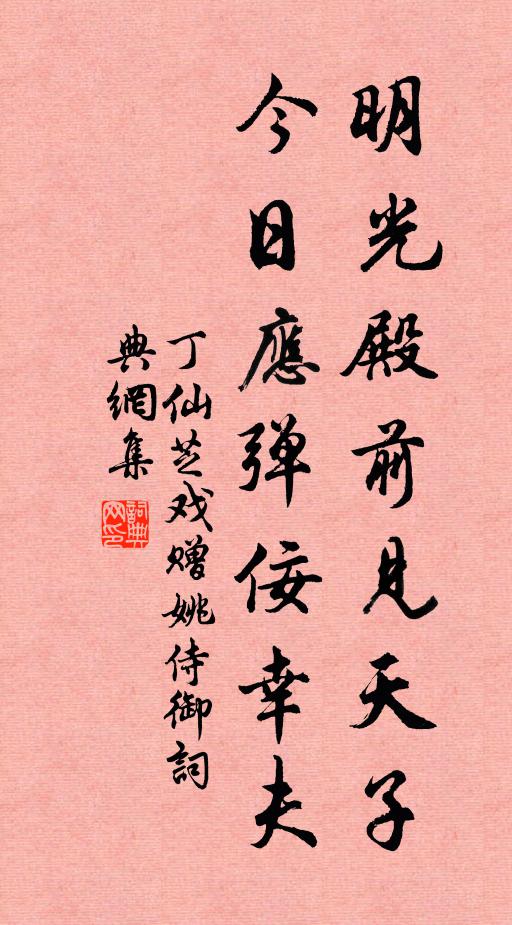 明光殿前見天子
今日應弹佞幸夫
丁仙芝戏贈姚侍御詞
典網集
詞典
网印